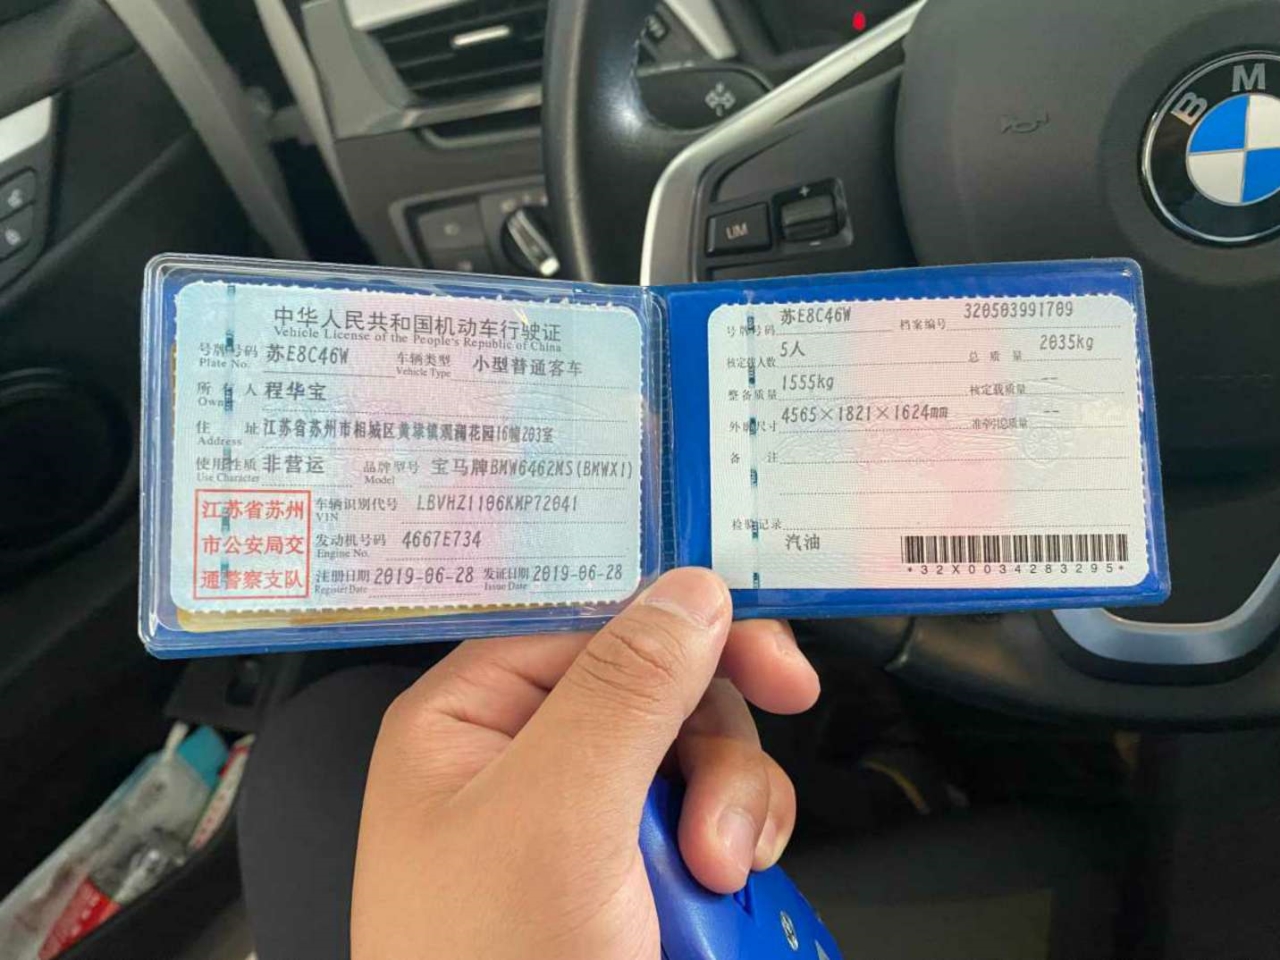 BMW
LIM
中华人民共和国机动车行驶证
Vehicle License of the People's Republic of China
号牌号码 苏E8C46W 车辆类型 小型普通客车
Plate No. Vehicle Type
所有人 程华宝
Owner
住址 江苏省苏州市相城区黄埭镇观湖花园16幢203室
Address
使用性质 非营运 品牌型号 宝马牌BMW6462MS(BMWX1)
Use Character Model
江苏省苏州
市公安局交
通警察支队
车辆识别代号 LBVHZ1106KMP72041
VIN
发动机号码 4667E734
Engine No.
注册日期 2019-06-28 发证日期 2019-06-28
Register Date Issue Date
号牌号码 苏E8C46W 档案编号 320503991709
核定载人数 5人 总质量 2035kg
整备质量 1555kg 核定载质量 --
外廓尺寸 4565×1821×1624mm 准牵引总质量 --
备注
检验记录
汽油
*32X0034283295*